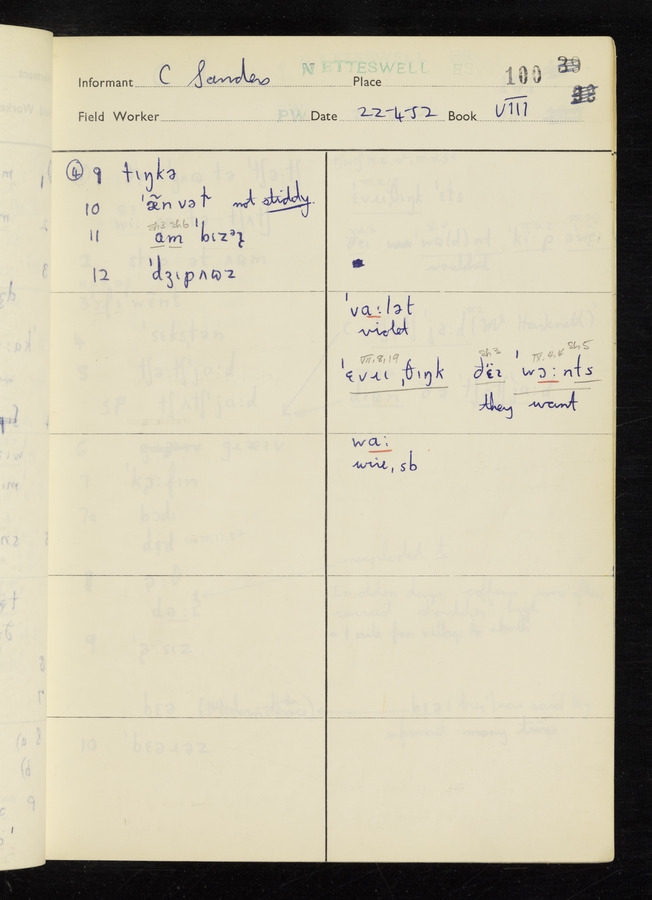 Informant C Sanders Place NETTESWELL ES 100 39
Field Worker Date 22-4-52 Book VIII
④ 9 tɪŋkə
10 ˈæ̃nvət not stiddy.
11 am ˈbɪzəʒ
12 ˈdʒɪpʌɷz
ˈva:lət
violet
VII,8,19 Sh.3 IV.4.4 Sh.5
ˈɛvɹɪ ˌθɪŋk ðëɪ ˈwɔ:nts
they want
wa:
wire, sb